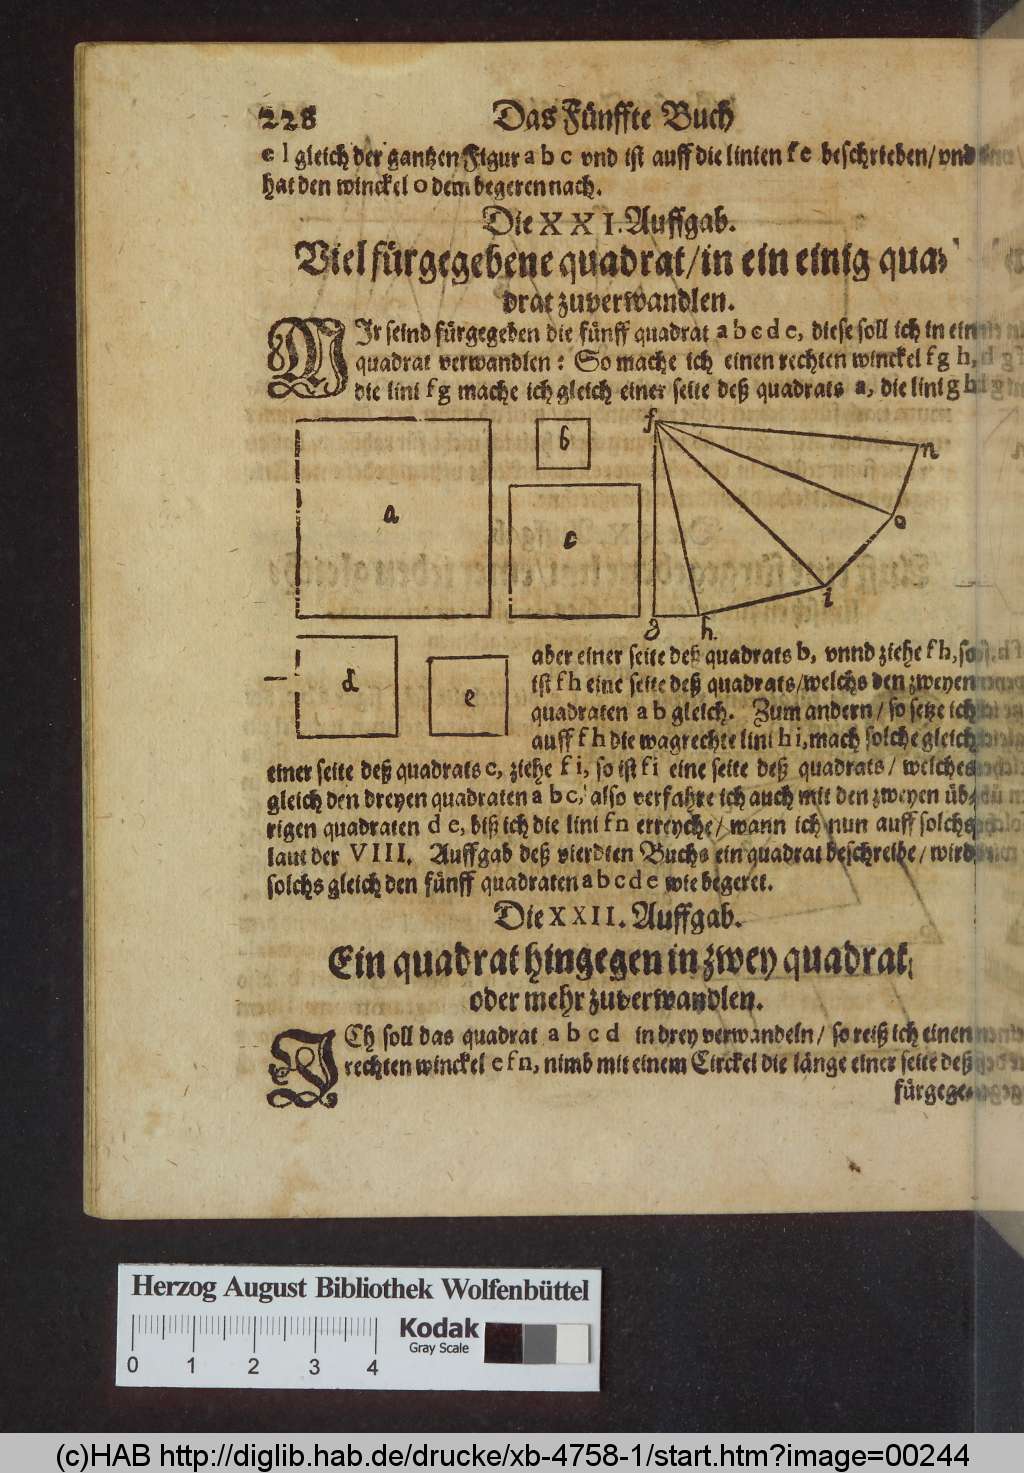 228 Das Fünffte Buch
e l gleich der gantzen Figur a b c vnd ist auff die linien f e beschrieben/ vnd
hat den winckel o dem begeren nach.
Die X X I. Auffgab.
Viel fürgegebene quadrat/ in ein einig qua-
drat zuverwandlen.
MIr seind fürgegeben die fünff quadrat a b c d e, diese soll ich in ein
quadrat verwandlen: So mache ich einen rechten winckel f g h,
die lini f g mache ich gleich einer seite deß quadrats a, die lini g h
a
b
c
f
n
o
i
g
h.
d
e
aber einer seite deß quadrats b, vnnd ziehe f h, so
ist f h eine seite deß quadrats/ welchs den zweyen
quadraten a b gleich. Zum andern/ so setze ich
auff f h die wagrechte lini h i, mach solche gleich
einer seite deß quadrats c, ziehe f i, so ist f i eine seite deß quadrats/ welches
gleich den dreyen quadraten a b c, also verfahre ich auch mit den zweyen üb-
rigen quadraten d e, biß ich die lini f n erreyche/ wann ich nun auff solchs
laut der VIII. Auffgab deß vierdten Buchs ein quadrat beschreibe/ wird
solchs gleich den fünff quadraten a b c d e wie begeret.
Die X X I I. Auffgab.
Ein quadrat hingegen in zwey quadrat/
oder mehr zuverwandlen.
ICh soll das quadrat a b c d in drey verwandeln/ so reiß ich einen
rechten winckel e f n, nimb mit einem Circkel die länge einer seite deß
fürgege-
Herzog August Bibliothek Wolfenbüttel
Kodak
Gray Scale
0 1 2 3 4
(c)HAB http://diglib.hab.de/drucke/xb-4758-1/start.htm?image=00244